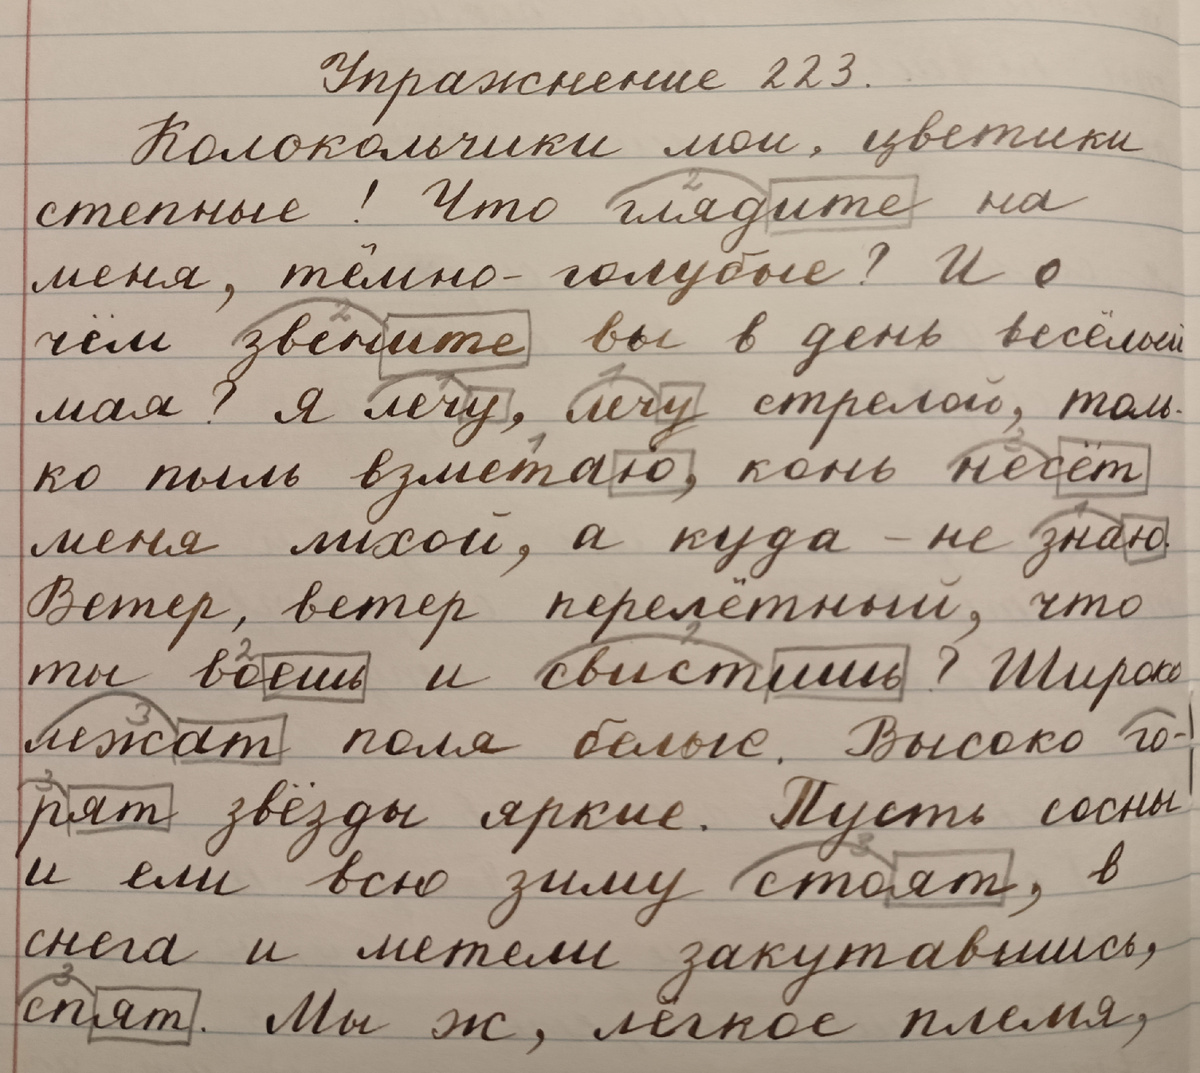 Упражнение 223.
Колокольчики мои, цветики
степные! Что глядите на
меня, тёмно-голубые? И о
чём звените вы в день весёлый
мая? Я лечу, лечу стрелой, толь-
ко пыль взметаю, конь несёт
меня лихой, а куда - не знаю.
Ветер, ветер перелётный, что
ты воешь и свистишь? Широко
лежат поля белые. Высоко го-
рят звёзды яркие. Пусть сосны
и ели всю зиму стоят, в
снега и метели закутавшись,
спят. Мы ж, лёгкое племя,